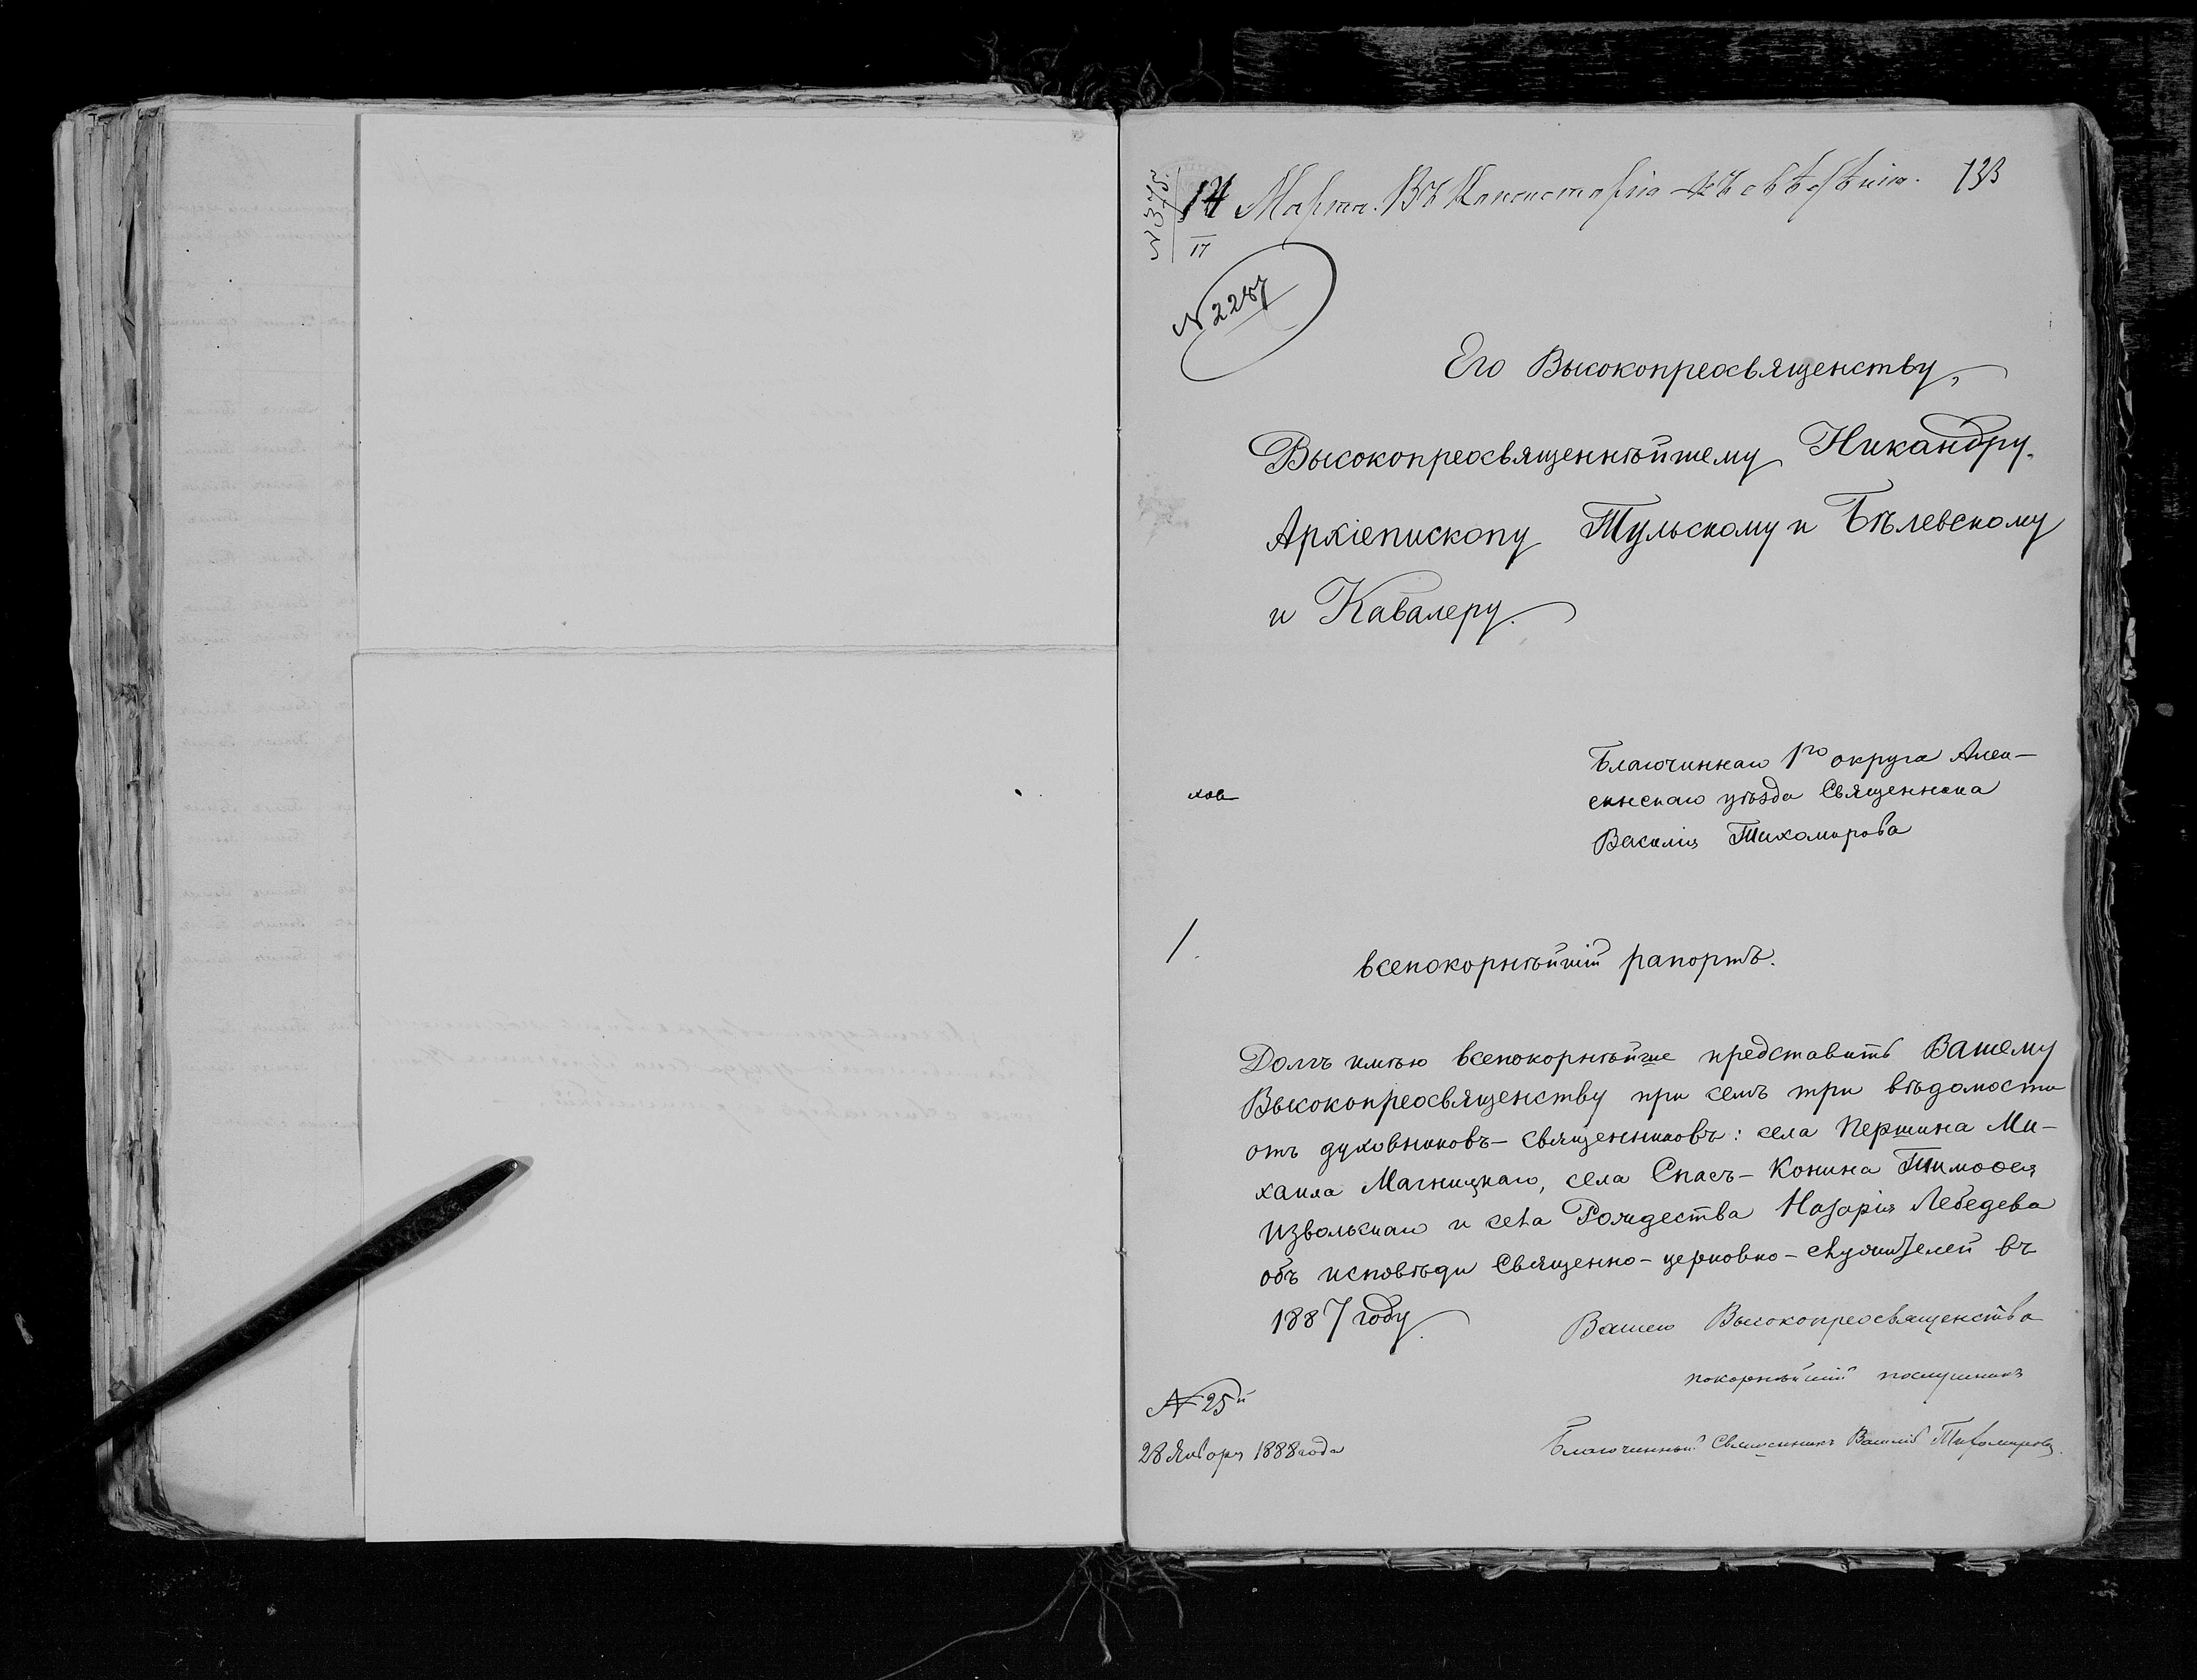 № 375.
14 Марта. Въ Консисторію къ свѣдѣнію. 133
17
№ 2287
Его Высокопреосвященству,
Высокопреосвященнѣйшему Никандру,
Архіепископу Тульскому и Бѣлевскому
и Кавалеру.
Благочиннаго 1го округа Алек-
синскаго уѣзда Священника
Василія Тихомирова
1.
всепокорнѣйшій рапортъ.
Долгъ имѣю всепокорнѣйше представить Вашему
Высокопреосвященству при семъ три вѣдомости
отъ духовниковъ-священниковъ: села Першина Ми-
хаила Магницкаго, села Спасъ-Конина Тимоѳея
Извольскаго и села Рождества Назарія Лебедева
объ исповѣди Священно-церковно-служителей въ
1887 году.
Вашего Высокопреосвященства
покорнѣйшій послушникъ
№ 25й
28 Января 1888 года
Благочинный Священникъ Василій Тихомировъ.